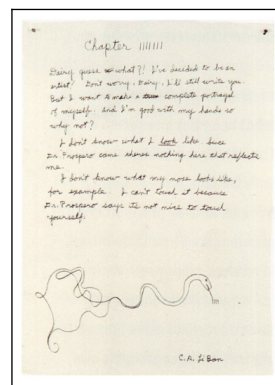 Chapter 1111111
Dairy guess what?! I've decided to be an
artist! Don't worry, Dairy, I'll still write you.
But I want to make a complete portrayal
of myself. and I'm good with my hands so
why not?
I don't know what I look like since
Dr. Prospero came theres nothing here that reflects
me.
I don't know what my nose looks like,
for example. I can't touch it because
Dr. Prospero says its not mine to touch
yourself.
C.A. LiBan